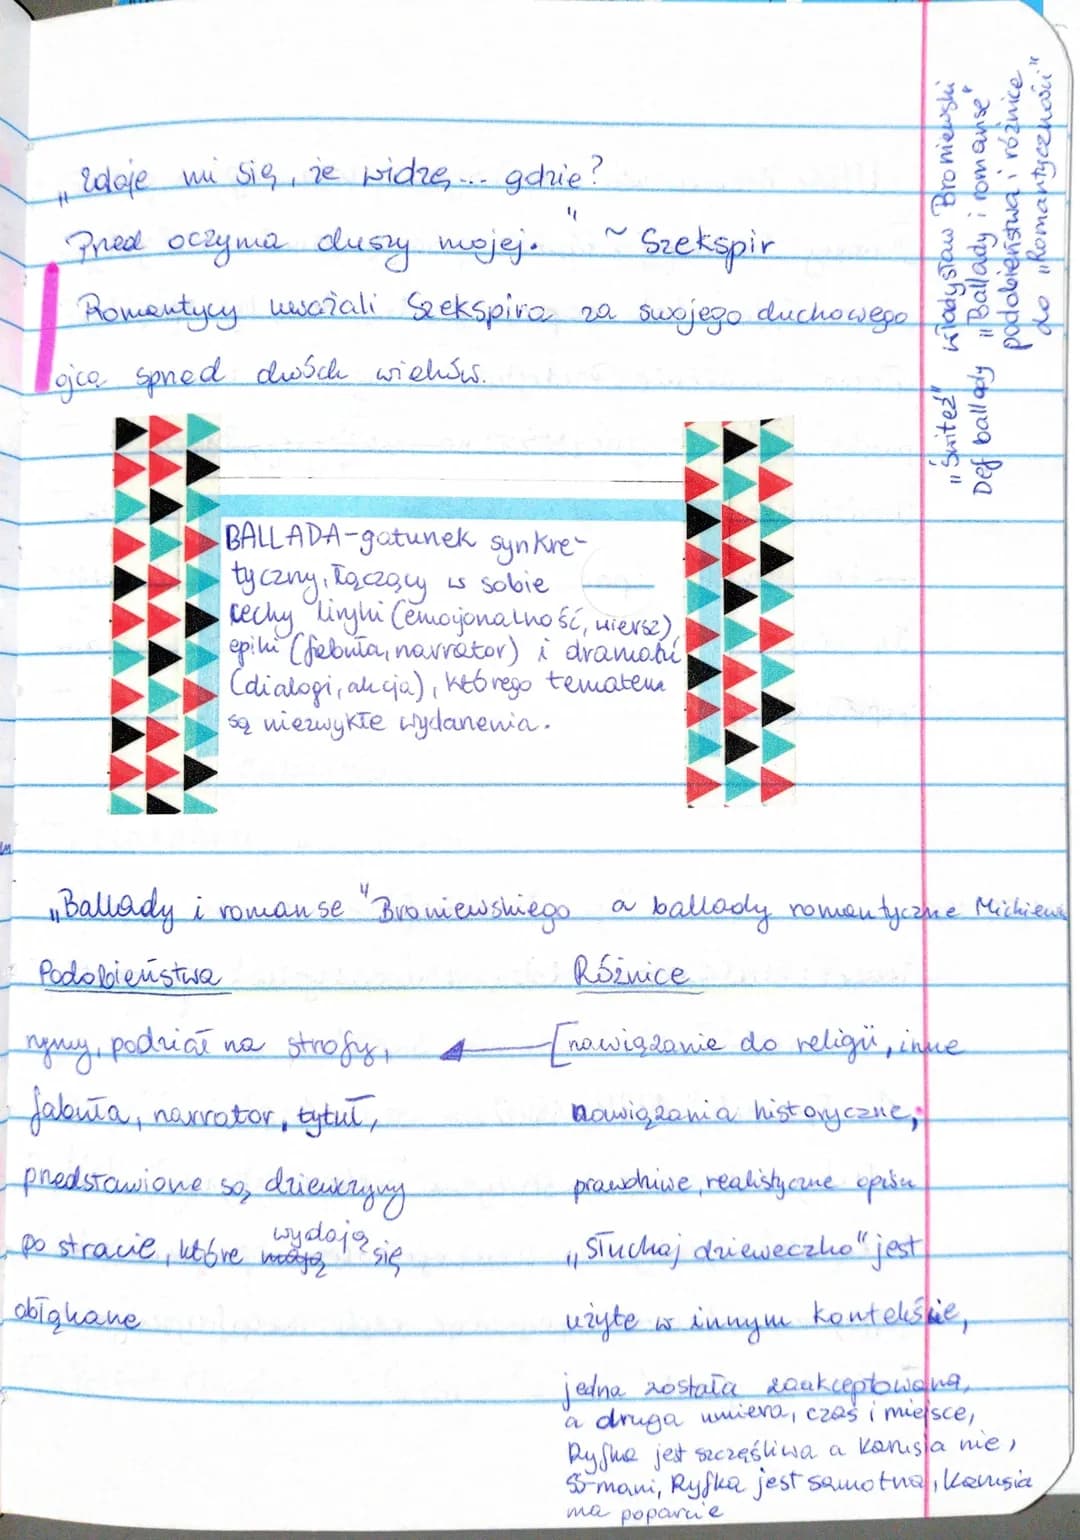 „Zdaje mi się, że widzę... gdzie?
Przed oczyma duszy mojej." ~ Szekspir
Romantycy uważali Szekspira za swojego duchowego
ojca sprzed dwóch wieków.
„Świteź" Władysław Broniewski
Def ballady „Ballady i romanse"
podobieństwa i różnice
do „Romantyczności"
BALLADA-gatunek synkre-
tyczny, łączący w sobie
cechy liryki (emocjonalność, wiersz),
epiki (fabuła, narrator) i dramatu
(dialogi, akcja), którego tematem
są niezwykłe wydarzenia.
„Ballady i romanse" Broniewskiego a ballady romantyczne Mickiew
Podobieństwa
rymy, podział na strofy,
fabuła, narrator, tytuł,
przedstawione są dziewczyny
po stracie, które wydają się
obłąkane
Różnice
[nawiązanie do religii, inne
nawiązania historyczne,
prawdziwe, realistyczne opisu
„Słuchaj dzieweczko" jest
użyte w innym kontekście,
jedna została zaakceptowana,
a druga umiera, czas i miejsce,
Ryfka jest szczęśliwa a Karusia nie,
SS-mani, Ryfka jest samotna, Karusia
ma poparcie